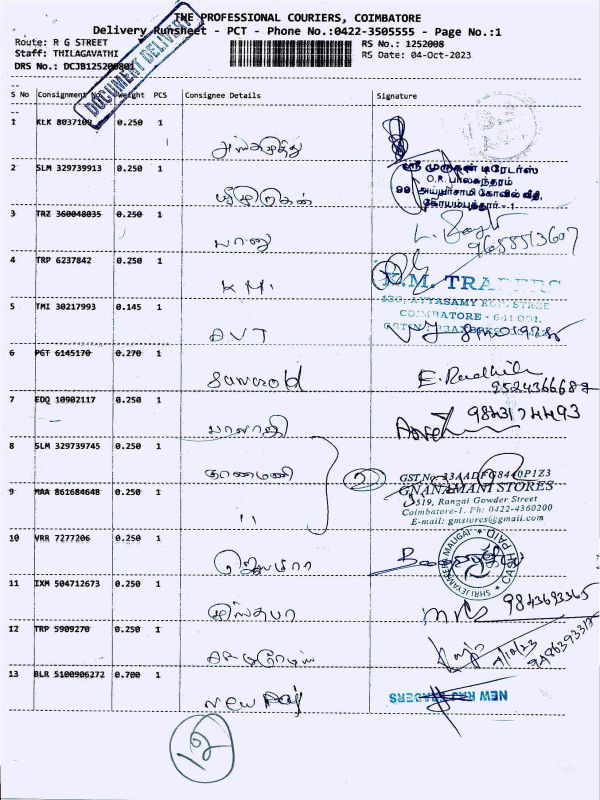 THE PROFESSIONAL COURIERS, COIMBATORE
Delivery Runsheet - PCT - Phone No.:0422-3505555 - Page No.:1
Route: R G STREET
RS No.: 1252008
Staff: THILAGAVATHI
RS Date: 04-Oct-2023
DRS No.: DCJB125200801
DOCUMENT DELIVERY
S No Consignment No Weight PCS Consignee Details Signature
1 KLK 0.250 1
2 SLM 329739913 0.250 1 ஸ்ரீமுருகன்
ஸ்ரீ முருகன் டிரேடர்ஸ்
O.R. பாலசுந்தரம்
99 அய்யர்சாமி கோவில் வீதி,
கோயம்புத்தூர் - 1.
3 TRZ 360048035 0.250 1 பானு
9655513607
4 TRP 6237842 0.250 1 KM
K.M. TRADERS
COIMBATORE - 641 001.
5 TMI 30217993 0.145 1 AVT
6 PGT 6145170 0.270 1
E. Radhika
9524366687
7 EDQ 10902117 0.250 1 பாலாஜி
9843174493
8 SLM 329739745 0.250 1 ஞானமணி
2
GST No. 33AADFG8440P1Z3
GNANAMANI STORES
519, Rangai Gowder Street
Coimbatore-1. Ph: 0422-4360200
E-mail: gmstores@gmail.com
9 MAA 861684648 0.250 1 "
10 VRR 7277206 0.250 1
CASH PAID
11 IXM 504712673 0.250 1
9843693365
12 TRP 5909270 0.250 1
4/10/23
13 BLR 5100906272 0.700 1 New Raj
NEW RAJ TRADERS
13